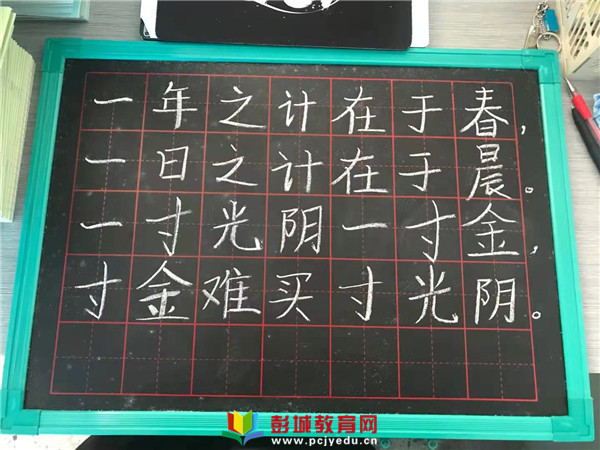 一年之计在于春，
一日之计在于晨。
一寸光阴一寸金，
寸金难买寸光阴。
彭城教育网
www.pcjyedu.cn